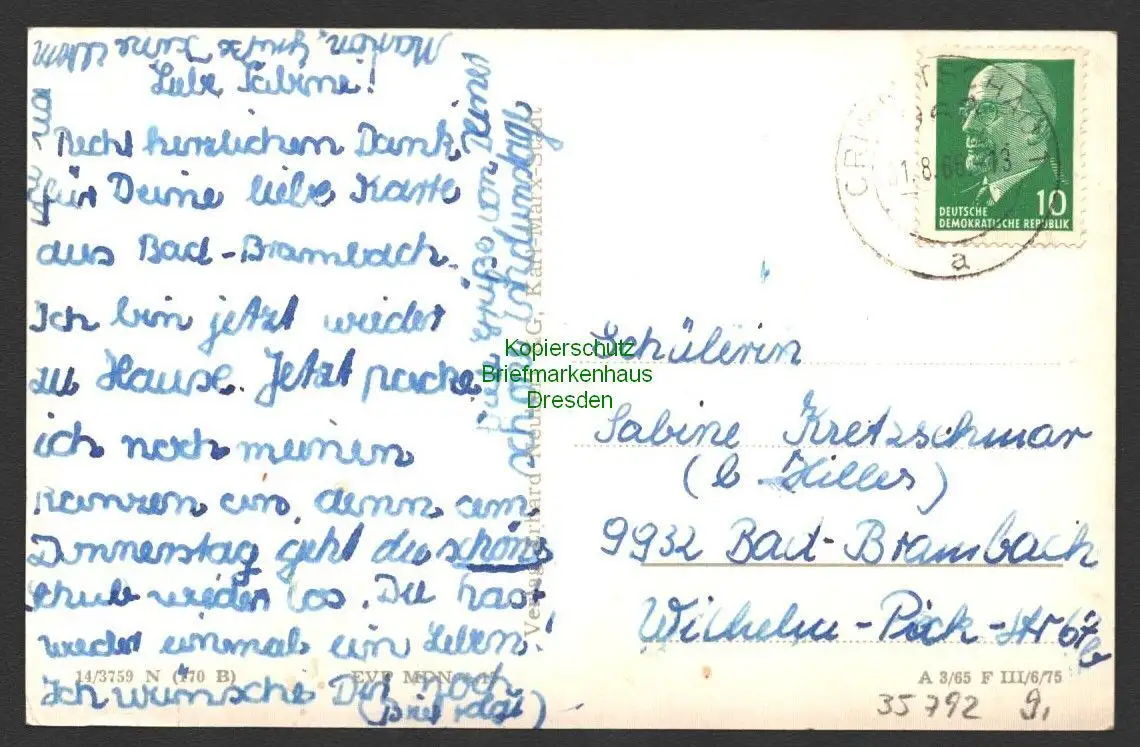 Liebe Sabine!
Recht herzlichen Dank
für Deine liebe Karte
aus Bad-Brambach.
Ich bin jetzt wieder
zu Hause. Jetzt packe
ich noch meinen
Ranzen ein, denn am
Donnerstag geht die schöne
Schule wieder los. Du hast
wieder einmal ein Leben!
Ich wünsche Dir noch
(Brief fdgt)
schöne
Viele Grüße von Deiner
Verlag Erhard Neubert KG, Karl-Marx-Stadt
14/3759 N (170 B)
EVP MDN
A 3/65 F III/6/75
10
DEUTSCHE
DEMOKRATISCHE REPUBLIK
a
Kopierschutz
Briefmarkenhaus
Dresden
Schülerin
Sabine Kretzschmar
(b Hiller)
9932 Bad-Brambach
Wilhelm-Pick-Str
35792 9,